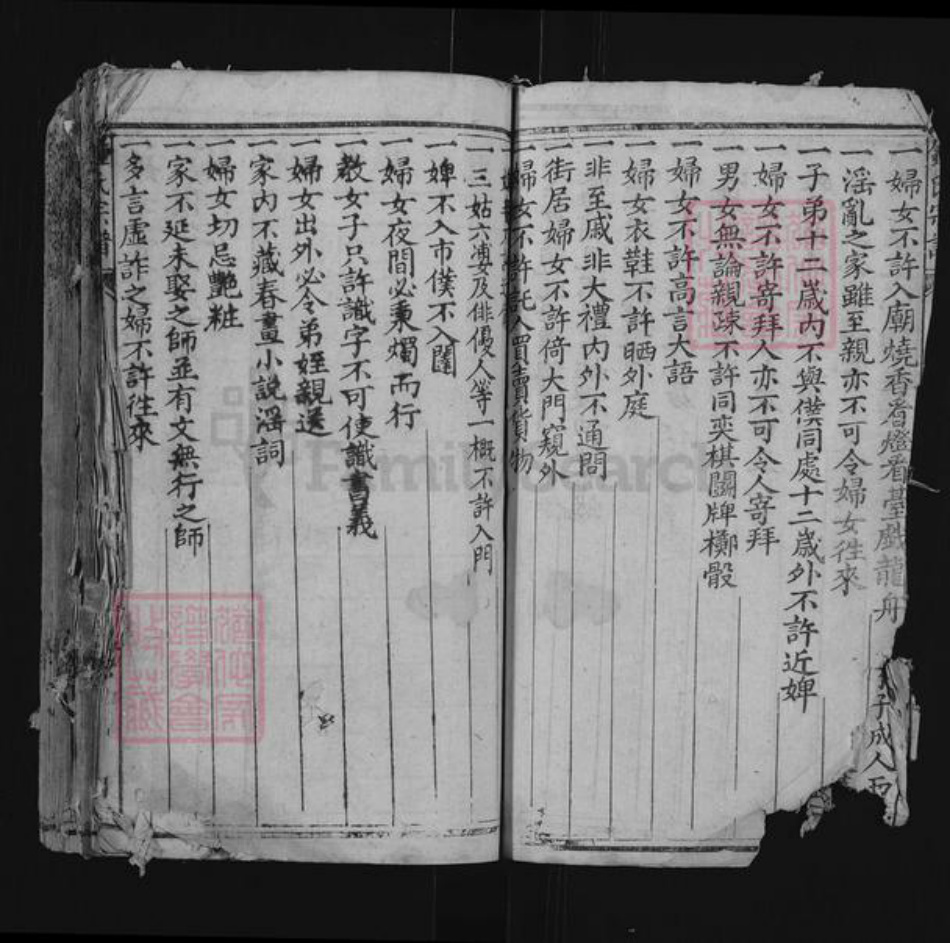 一婦女不許入廟燒香看燈看臺戲龍舟
一淫亂之家雖至親亦不可令婦女徃來
一子弟十二歲內不與僕同處十二歲外不許近婢
一婦女不許寄拜人亦不可令人寄拜
一男女無論親疎不許同奕棋鬬牌擲骰
一婦女不許高言大語
一婦女衣鞋不許晒外庭
一非至戚非大禮內外不通問
一街居婦女不許倚大門窺外
一婦女不許託人買賣貨物
一三姑六婆及俳優人等一概不許入門
一婢不入市僕不入闈
一婦女夜間必秉燭而行
一教女子只許識字不可使識書義
一婦女出外必令弟姪親送
一家內不藏春畫小說淫詞
一婦女切忌艷粧
一家不延未娶之師並有文無行之師
一多言虛詐之婦不許徃來
子成人而
氏宗譜
FamilySearch